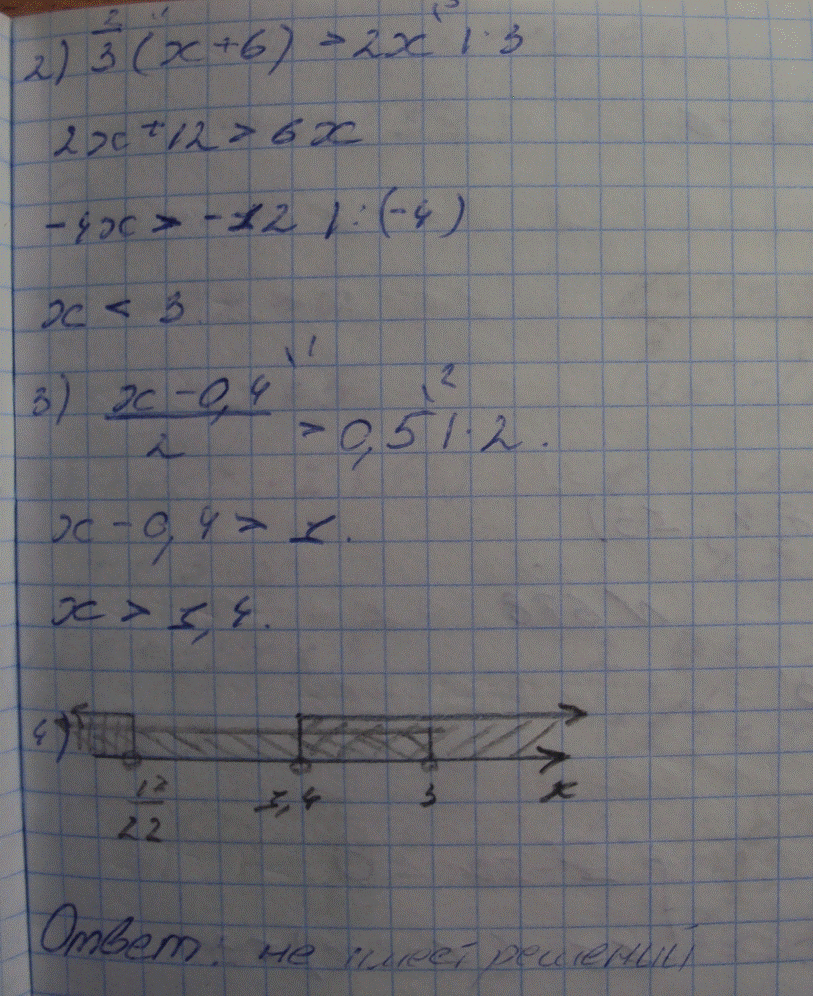 2) 2/3 (x+6) > 2x | · 3
2x + 12 > 6x
-4x > -12 | : (-4)
x < 3
3) (x - 0,4)/2 \1 > 0,5 \2 | · 2.
x - 0,4 > 1.
x > 1,4.
4)
17/22 1,4 3 x
Ответ: не имеет решений